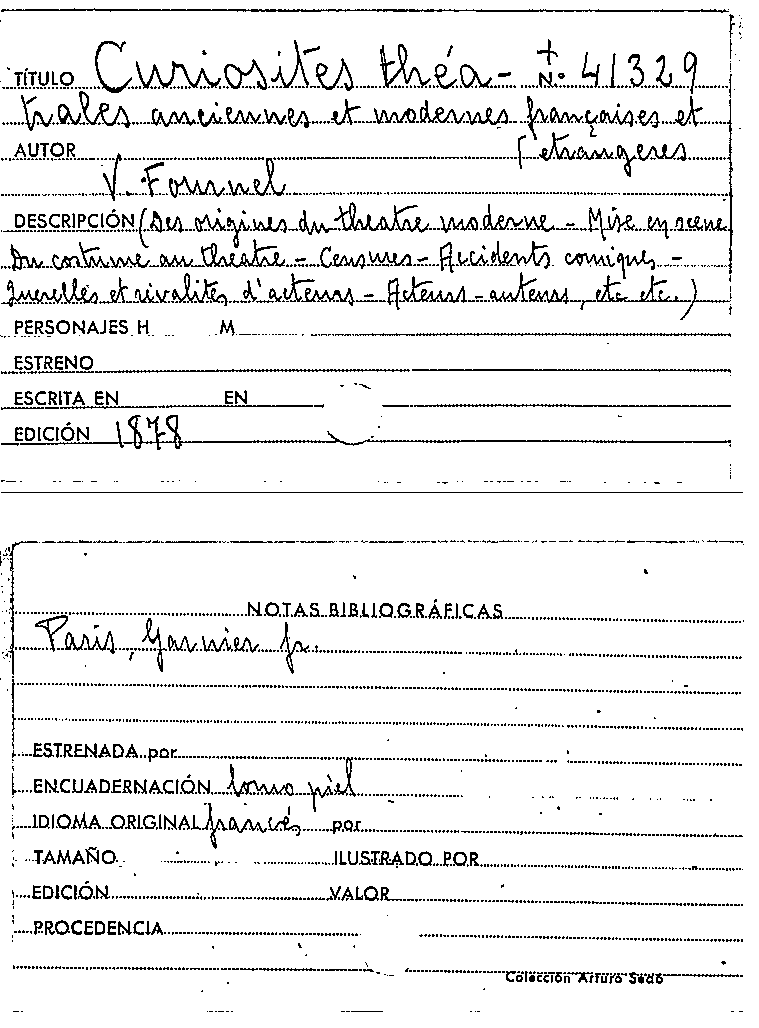 TÍTULO Curiosites théa- + N.º 41329
trales anciennes et modernes françaises et
AUTOR [etrangeres
V. Fournel
DESCRIPCIÓN (Des origines du theatre moderne - Mise en scene
Du costume au theatre - Censures - Accidents comiques -
Querelles et rivalites d'acteurs - Acteurs-auteurs, etc etc.)
PERSONAJES H M
ESTRENO
ESCRITA EN EN
EDICIÓN 1878
NOTAS BIBLIOGRÁFICAS
Paris, Garnier fr.
ESTRENADA por
ENCUADERNACIÓN lomo piel
IDIOMA ORIGINAL francés por
TAMAÑO ILUSTRADO POR
EDICIÓN VALOR
PROCEDENCIA
Colección Arturo Sedó